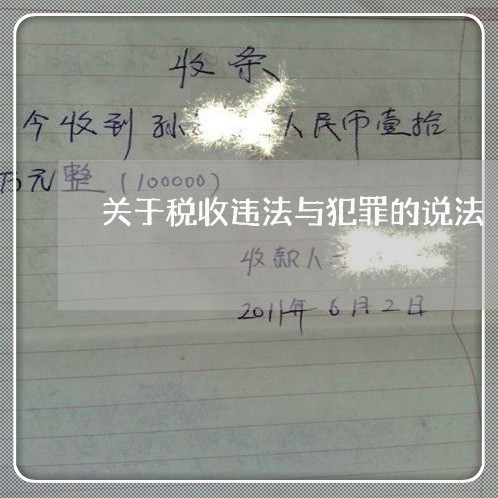 收条
今收到孙 人民币壹拾
万元整（100000）
关于税收违法与犯罪的说法
收款人
2011年6月2日